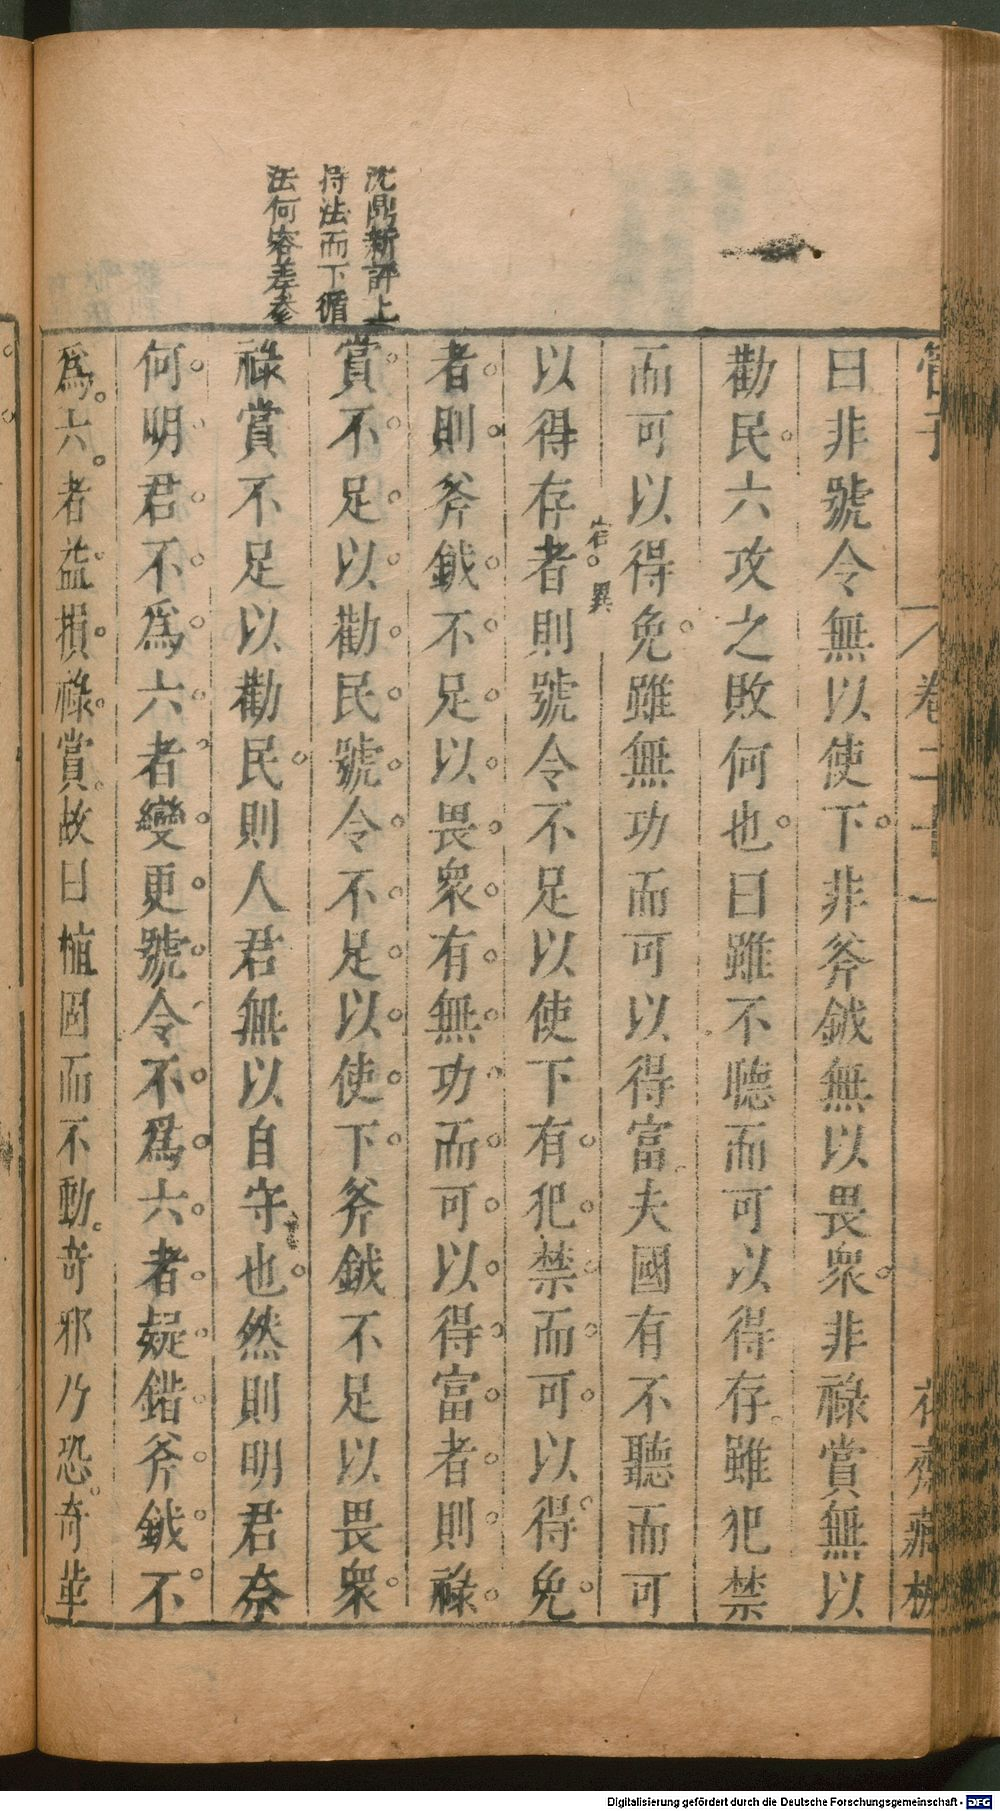 管子
卷二十一
花齋藏板
曰非號令無以使下非斧鉞無以畏衆非祿賞無以
勸民六攻之敗何也曰雖不聽而可以得存雖犯禁
而可以得免雖無功而可以得富夫國有不聽而可
以得存者則號令不足以使下有犯禁而可以得免
者則斧鉞不足以畏衆有無功而可以得富者則祿
賞不足以勸民號令不足以使下斧鉞不足以畏衆
祿賞不足以勸民則人君無以自守也然則明君奈
何明君不爲六者變更號令不爲六者疑錯斧鉞不
爲六者益損祿賞故曰植固而不動奇邪乃恐奇革
沈鼎新評上
持法而下循
法何容差參
異
Digitalisierung gefördert durch die Deutsche Forschungsgemeinschaft - DFG